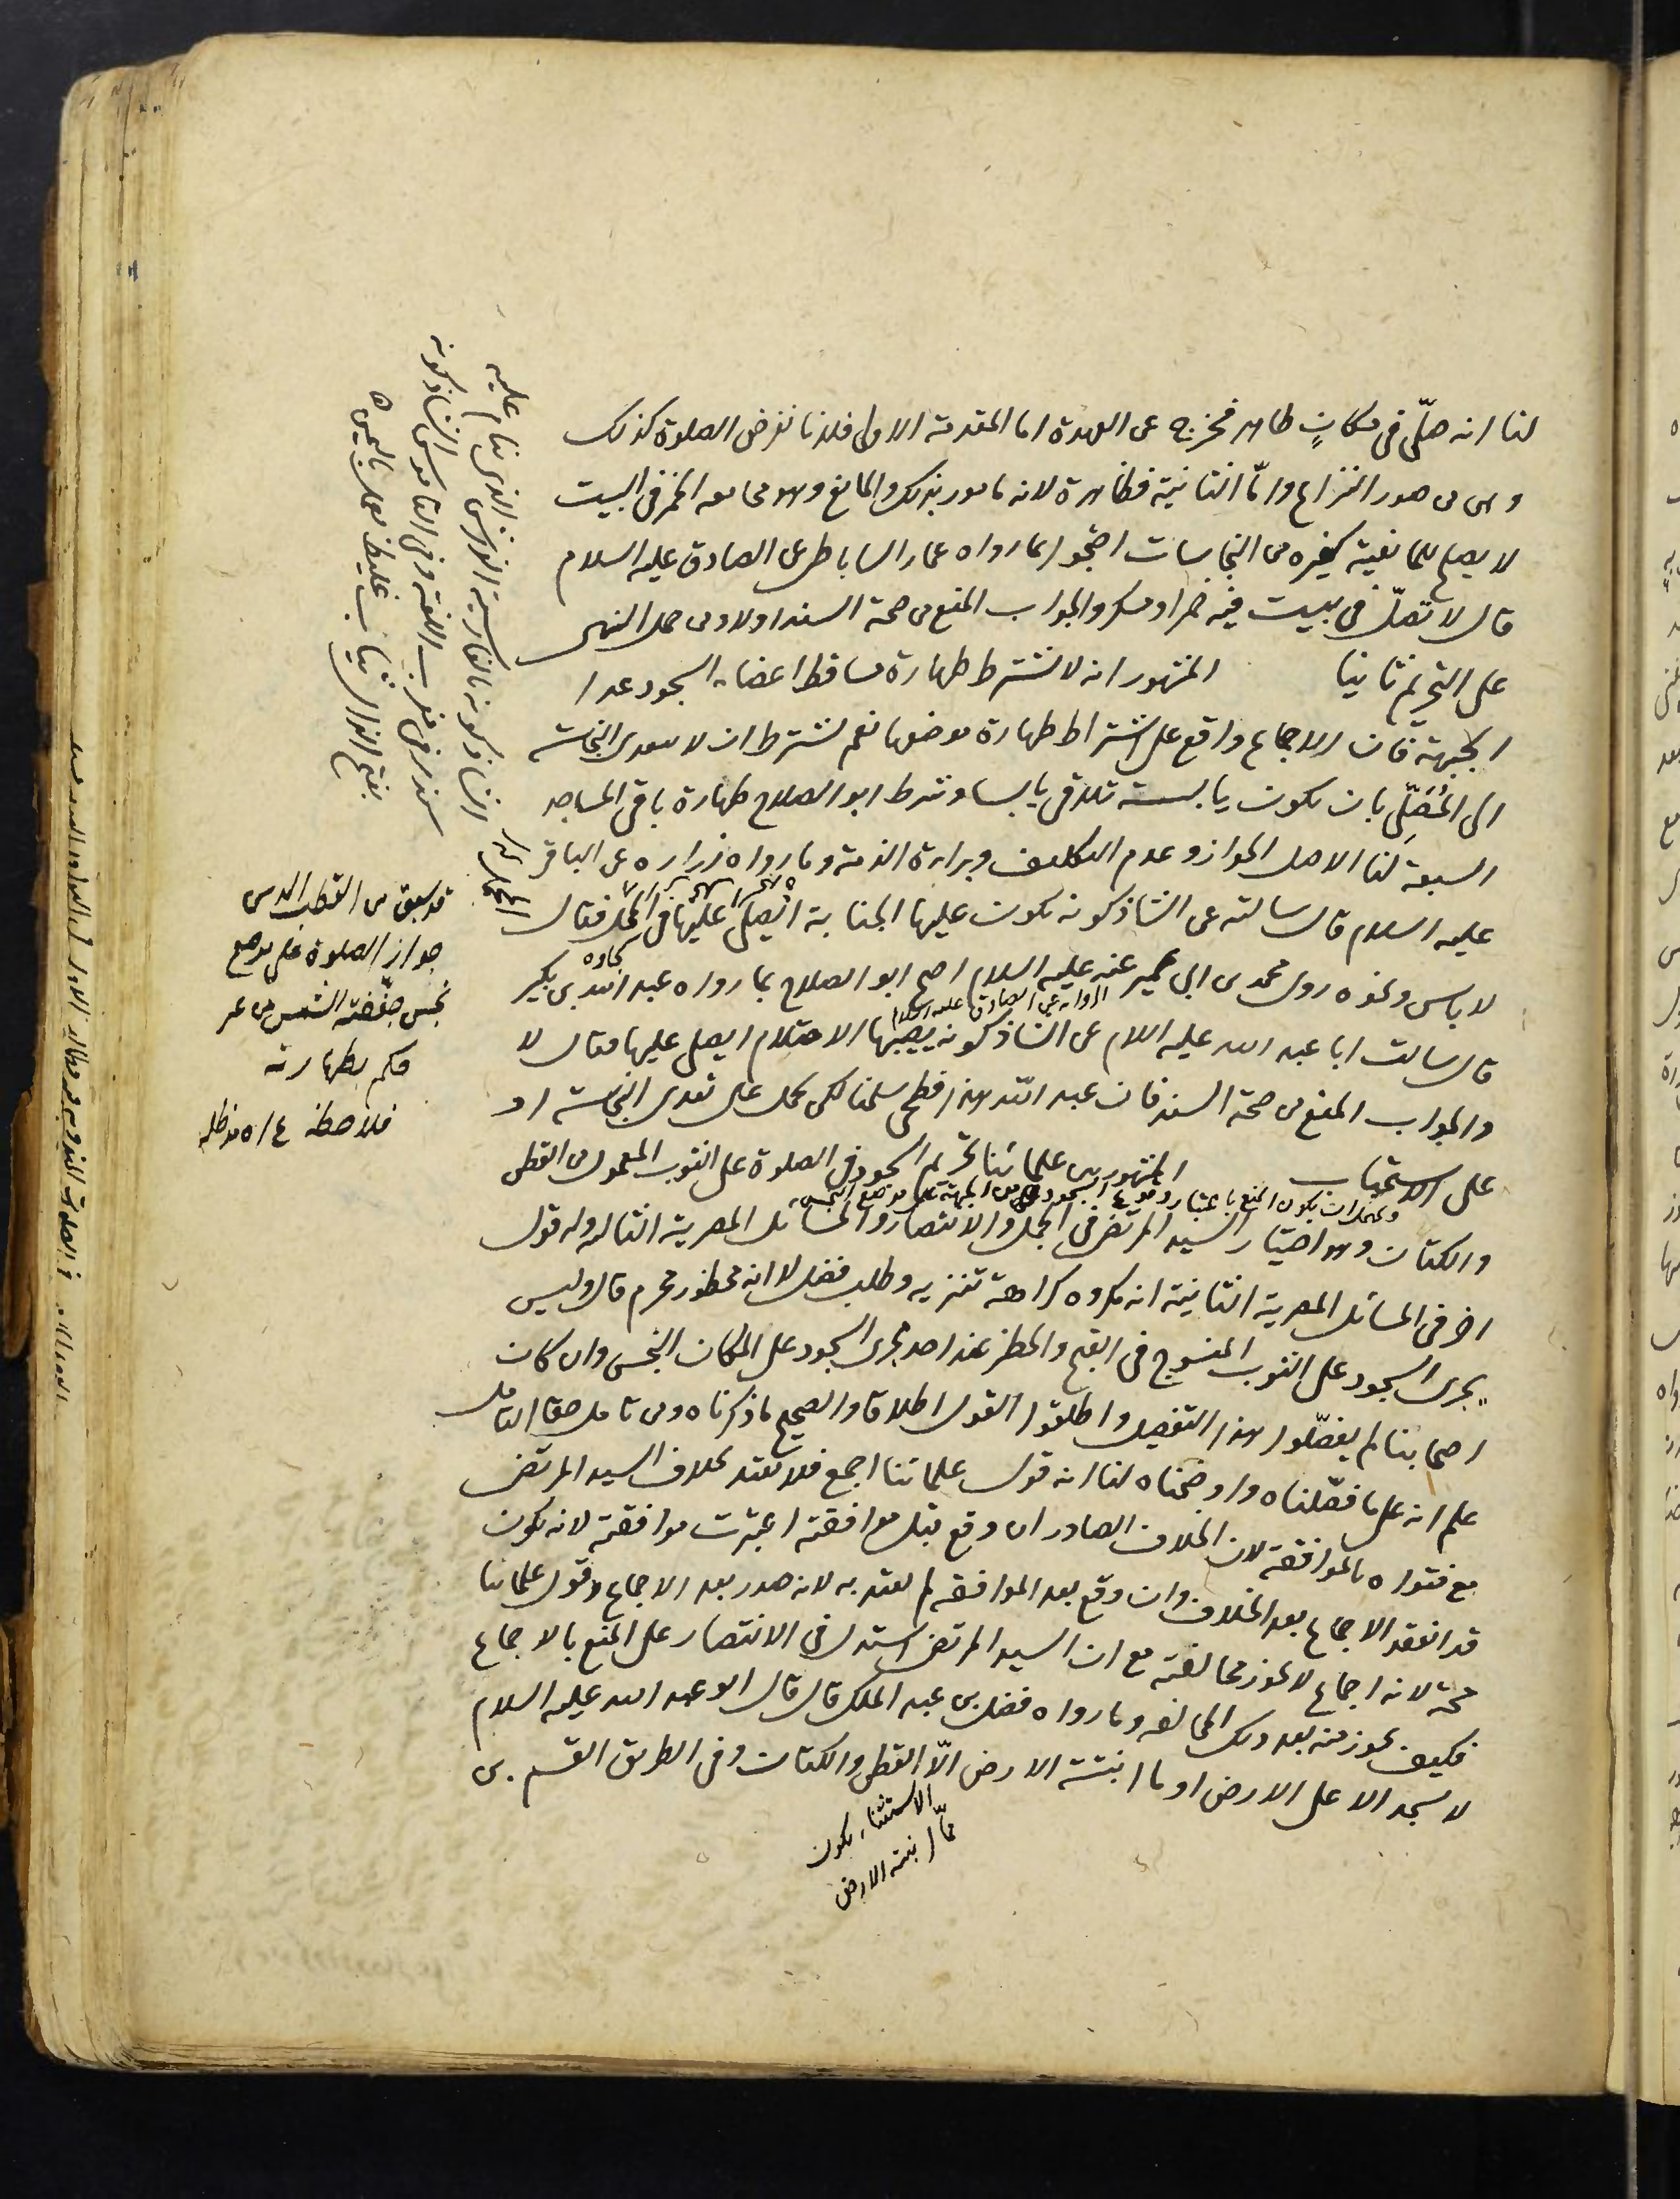 لنا انه صلّى في مكانٍ طاهر فخرج عن العهدة اما المقدمة الاولى فلانا نفرض الصلوة كذلك
وهي من صور النزاع وامّا الثانية فظاهرة لانه مامور بذلك والمانع وهو مجامعه الخمر في البيت
لا يصلح للمانعية كغيره من النجاسات احتجوا بما رواه عمار الساباطي عن الصادق عليه السلام
قال لا تصلّ في بيت فيه خمر او مسكر والجواب المنع من صحة السند اولا ومن حمل النهي
على التحريم ثانيا المشهور انه لا تشترط طهارة مساقط اعضاء السجود عدا
الجبهة فان الاجماع واقع على اشتراط طهارة موضعها نعم تشترط ان لا تتعدى النجاسة
الى المُصَلّي بان تكون يابسة تلاقي يابسا وشرط ابو الصلاح طهارة باقي المساجد
السبعة لنا الاصل الجواز وعدم التكليف وبراءة الذمة وما رواه زرارة عن الباقر
عليه السلام قال سالته عن الشاذكونه تكون عليها الجنابة ايصلى عليها في المحمل فقال
لا باس ونحوه روى محمد بن ابي عمير عنه عليه السلام احتج ابو الصلاح بما رواه عبد الله بن بكير
قال سالت ابا عبد الله عليه السلام عن الشاذكونه يصيبها الاحتلام ايصلى عليها فقال لا
والجواب المنع من صحة السند فان عبد الله هذا فطحي سلمنا لكن يحمل على تعدى النجاسة او
على الاستحباب المشهور بين علمائنا تحريم السجود في الصلوة على الثوب المعمول من القطن
ويحتمل ان يكون المنع باعتبار وقوع السجود من الجبهة على موضع النجس
والكتان وهو اختيار السيد المرتضى في الجمل والانتصار والمسائل المصرية الثالثة وله قول
اخر في المسائل المصرية الثانية انه مكروه كراهة تنزيه وطلب فضل لا انه محظور محرم قال وليس
يجرى السجود على الثوب المنسوج في القبح والحظر عند احد مجرى السجود على المكان النجس وان كان
اصحابنا لم يفصّلوا هذا التفصيل واطلقوا القول اطلاقا والصحيح ما ذكرناه ومن تامل حقا التامل
علم انه على ما فصّلناه واوضحناه لنا انه قول علمائنا اجمع فلا تعتد بخلاف السيد المرتضى
مع فتواه بالموافقة لان الخلاف الصادر ان وقع قبل موافقته اعتبرت موافقته لانه يكون
قد انعقد الاجماع بعد الخلاف وان وقع بعد الموافقة لم يعتد به لانه صدر بعد الاجماع وقول علمائنا
حجة لانه اجماع لا تجوز مخالفته مع ان السيد المرتضى استدل في الانتصار على المنع بالاجماع
فكيف يجوز منه بعد ذلك المخالفة وما رواه فضل بن عبد الملك قال قال ابو عبد الله عليه السلام
لا يسجد الا على الارض او ما انبتته الارض الّا القطن والكتان وفي الطريق القسم بن
الاستثناء يكون
ممّا انبتته الارض
الشاذكونه بالفارسية الفرش الذي ينام عليه
الشاذكونه
بفتح الذال ثياب غليظ تعمل باليمن
قد سبق من القطب الراوندي
جواز الصلوة على موضع
نجس جفّفته الشمس من غير
حكم بطهارته
فلاحظه